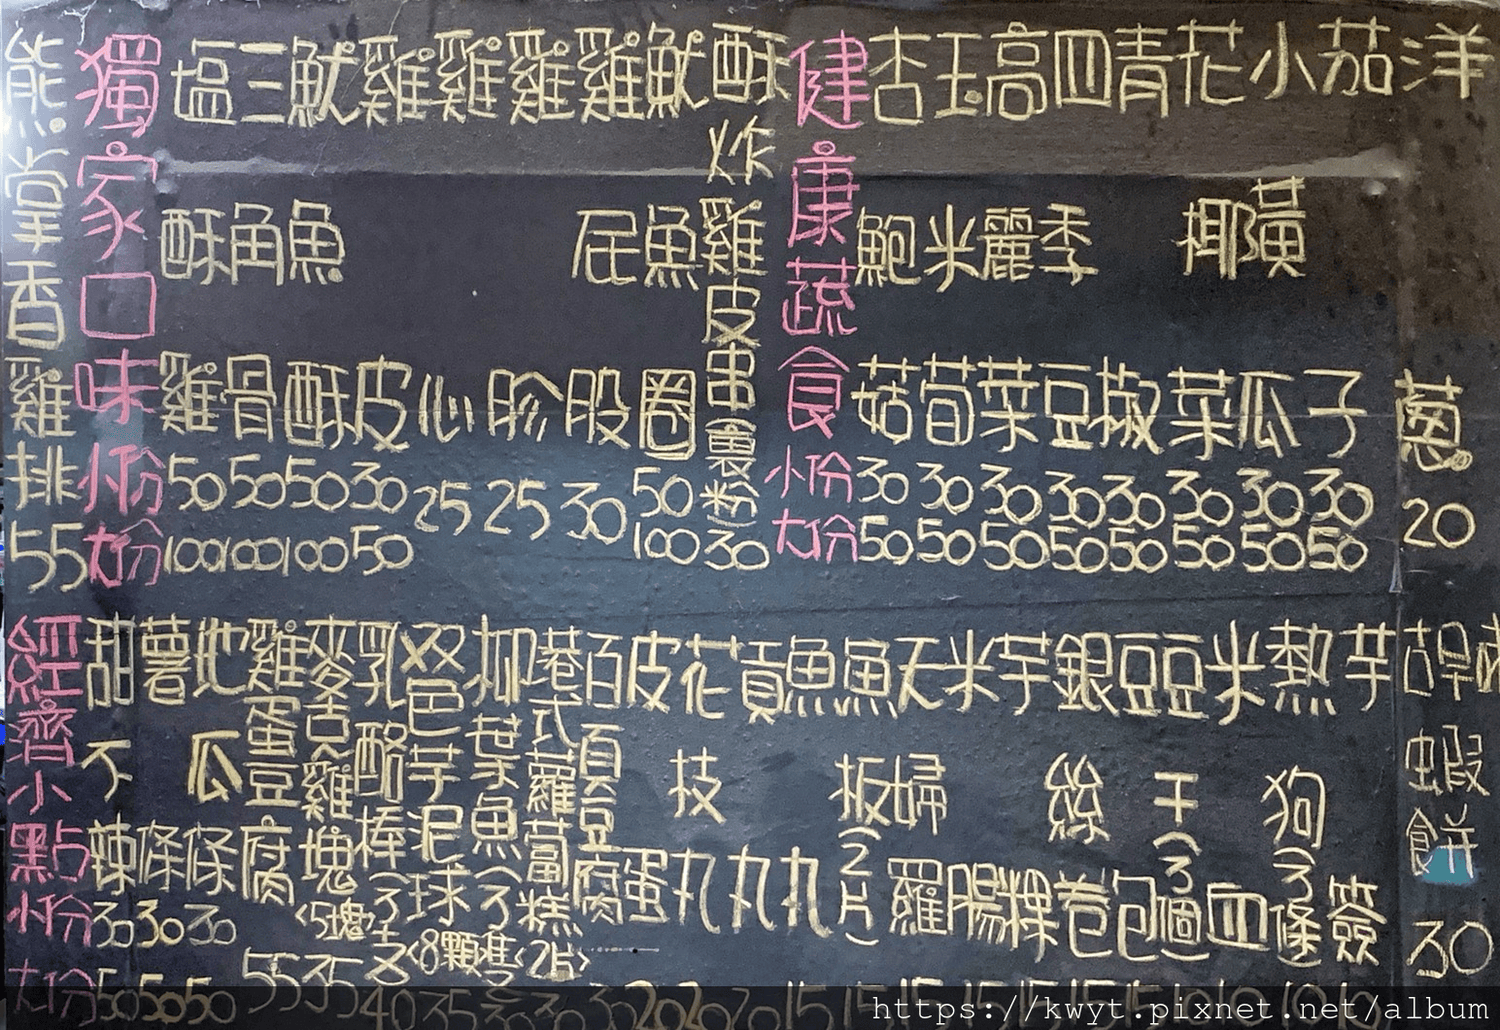 熊掌香雞排 55
獨家口味 小份 大份
塩酥雞 50 100
三角骨 50 100
魷魚酥 50 100
雞皮 30 50
雞心 25
雞胗 25
雞屁股 30
魷魚圈 50 100
酥炸雞皮串(裹粉) 30
健康蔬食 小份 大份
杏鮑菇 30 50
玉米筍 30 50
高麗菜 30 50
四季豆 30 50
青椒 30 50
花椰菜 30 50
小黃瓜 30 50
茄子 30 50
洋蔥 20
經濟小點 小份 大份
甜不辣 30 50
薯條 30 50
地瓜條 30 50
雞蛋豆腐 55
麥雞塊(5塊) 35
乳酪棒(3支) 40
双色芋泥球(8顆) 35
柳葉魚(3隻)
港式蘿蔔糕(2片) 30
百頁豆腐 30
皮蛋 20
花枝丸 20
貢丸 20
魚丸 15
魚板(2片) 15
天婦羅
米腸 15
芋粿 15
銀絲卷 15
豆包 15
豆干(3個) 10
米血 10
熱狗(3條) 10
芋簽 10
古早味蝦餅 30
https://kwyt.pixnet.net/album